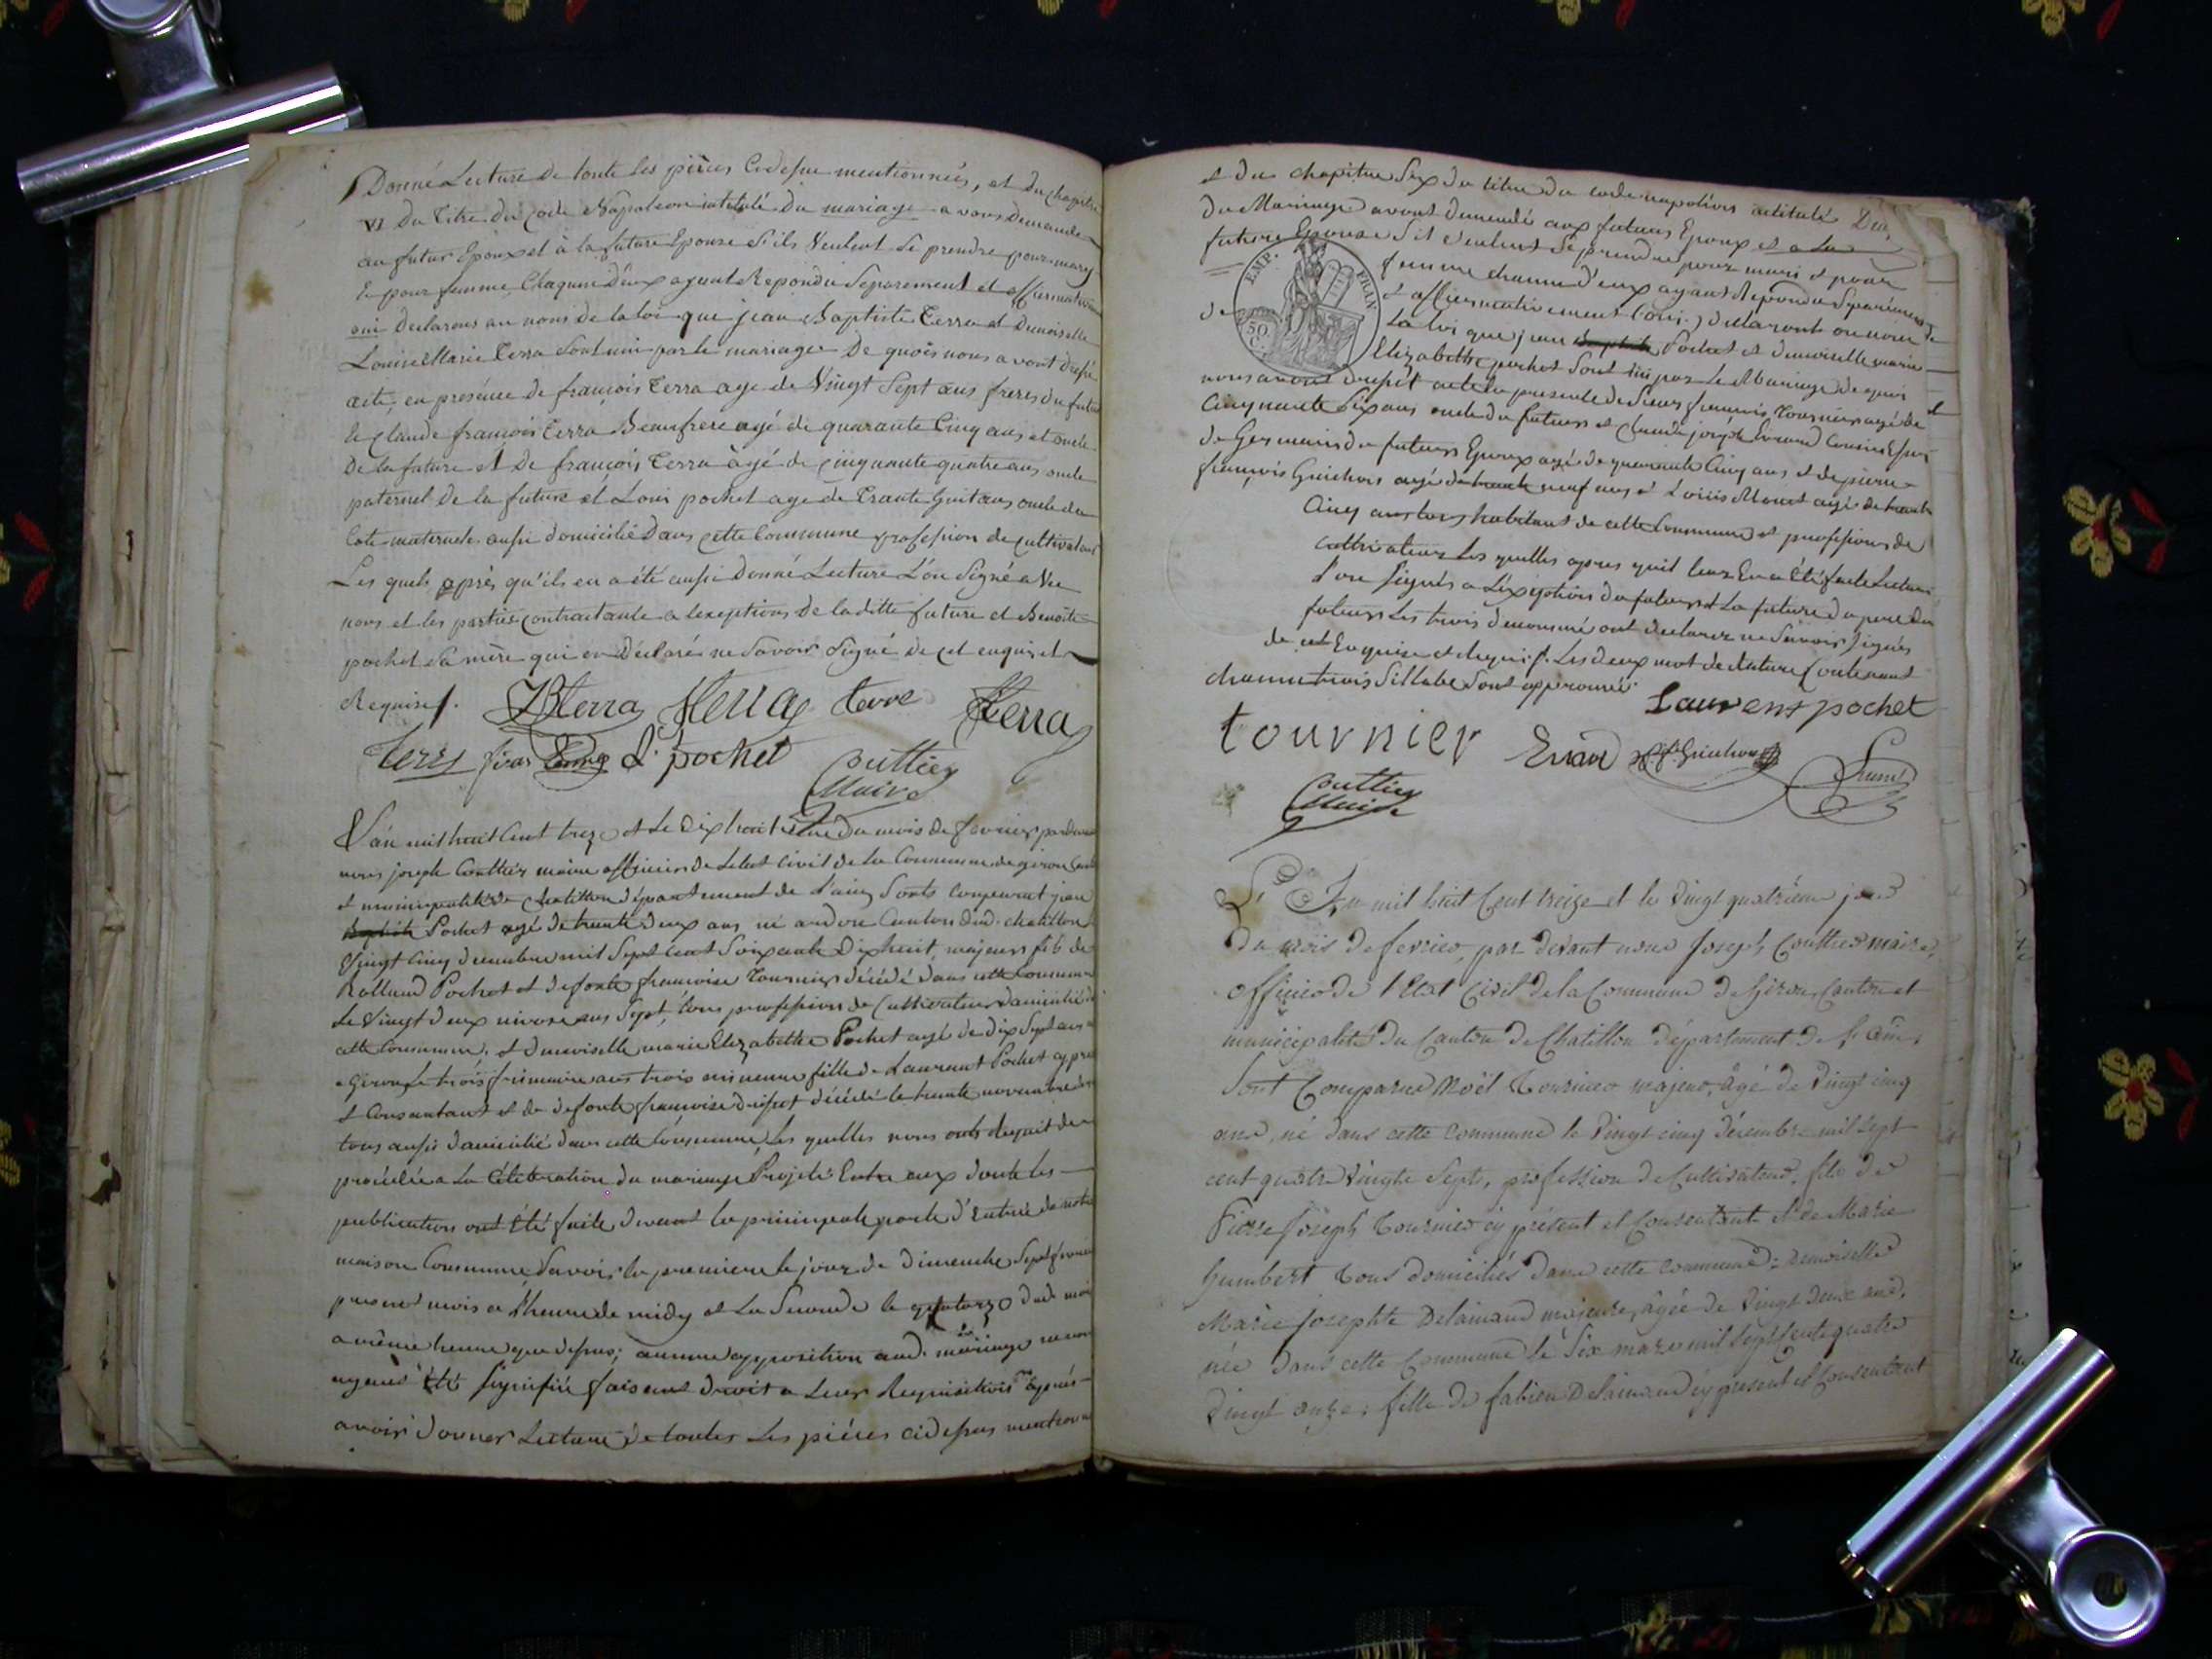 Donné Lecture de toute les pièces Cidessue mentionnées, et du chapitre
VI du Titre du Code Napoleon intitulé du mariage avons demandé
au futur Epoux et à la future Epouse S'ils Veulent Se prendre pour mary
Et pour femme Chaqun D'eux ayant Repondu Separement et affirmativement
oui Declarons au nom de la loi que jean Baptiste Terra et Demoiselle
Louise Marie Terra Sont uni par le mariage De quois nous avont Dressé
acte, en présence de françois Terra age de Vingt Sept ans freres du futur
Et Claude françois Terra Beaufrere agé de quarante Cinq ans et oncle
De la future et De françois Terra âgé de cinquante quatre ans oncle
paternel de la future et Loui pochet age de Trante huit ans oncle du
Coté maternele aussi domicilié Dans cette Commune profession de cultivateur
Les quels après qu'ils en a été aussi Donné Lecture L'on Signé avec
nous et les parties contractante a lexeptions de laditte future et Benoite
pochet Sa mère qui on Déclaré ne Savoir Signé de cet enquis et
Requise.
JBterra Terra terre fterra
L. pochet
Couttier
Maire
L'an mil huit Cent treze et Le Dix huitième du mois de fevrier pardevant
nous joseph Couttier maire officier de Letat Civil de la Commune de giron Canton
et municipalité de Chatillon département de L'ain, Sonts Comparant jean
Baptiste Pochet agé de trante deux ans né ardon Canton dud. chatillon
Vingt Cinq decembre mil Sept Cent Soixante Dix huit, majeurs fils de
Rolland Pochet et defonte françoise Tournier décédé dans cette Commune
Le Vingt deux nivose ans Sept, tous profession de Cultivateur domicilié de
cette Commune, et demoiselle marie Elizabethe Pochet agé de dix Sept ans
a giron Le trois frimaire ans trois mineure fille de Laurent Pochet cy present
et Consentant et de defonte françoise décédé le trante novembre
tous aussi domicilié dans cette Commune, Les quelles nous onts requit de
procédée a La Célébration du mariage Projeté Entre eux donte les
publications ont Été faite devant la principale porte d'Entrée de notre
maison Commune Savoir la premiere le jour de dimenche Sept fevrier
present mois a lheure de midy et La Seconde le quatorze dud. mois
a même heure que dessus; aucune opposition aud. mariage ne nous
ayant été Signifiée faisant droit a Leur Requisitions après
avoir donner Lecture de toutes Les pièces cidessus mentionné
et du chapitre Six du titre du code napoléon intitulé Du
Du Mariage avont demendé aux futurs Epoux et a La
future Epouse S'il veulent Se prendre pour mari et pour
femme chacune d'eux ayant Repondu Separement
et affirmativement (oui.) declaront au nom de
La loi que jean Baptiste Pochet et demoiselle marie
Elizabethe pochet Sont uni par Le Mariage de quoi
nous avont dressét acte en presence de Sieurs françois Tournier agé de
Cinquante Six ans oncle du futur et Claude joseph Evrard Cousin
de Germain du futurs Epoux agé de quarante Cinq ans et de pierre
françois Guichon agé de trante neuf ans et Louis Manet agé de trante
Cinq ans tous habitant de cette Commune et professions de
cultivateur Les quelles apres quil leur En a été faite Lecture
L'on Signés a Léxeptions du futurs et La future du pere du
futurs Les trois denommé ont declarer ne Savoir Signés
de cet Enquise et Requis. Les deux mot de Rature Contenant
chacune trois Sillabe Sont approuvé.
Laurent pochet
tournier Evrard p. f. Guichon
Couttier
Maire
L'An mil huit Cent treize et le vingt quatrième jour
du mois de fevrier, par devant nous Joseph Couttier maire,
officier de l'Etat Civil de la Commune de Giron, Canton et
municipalité du Canton de Chatillon département de l'ain,
Sont Comparus Noël Tournier majeur, âgé de vingt cinq
ans, né dans cette commune le vingt cinq décembre mil sept
cent quatre vingts Sept, profession de Cultivateur, fils de
Pierre Joseph Tournier cy présent et Consentant et de Marie
humbert tous domiciliés dans cette commune: Demoiselle
Marie Josephte Delainaud majeure, âgée de vingt deux ans,
née dans cette Commune le Six mars mil sept cents quatre
vingt onze; fille de fabien Delainaud cy present et Consentant
EMP. FRAN.
50
C.